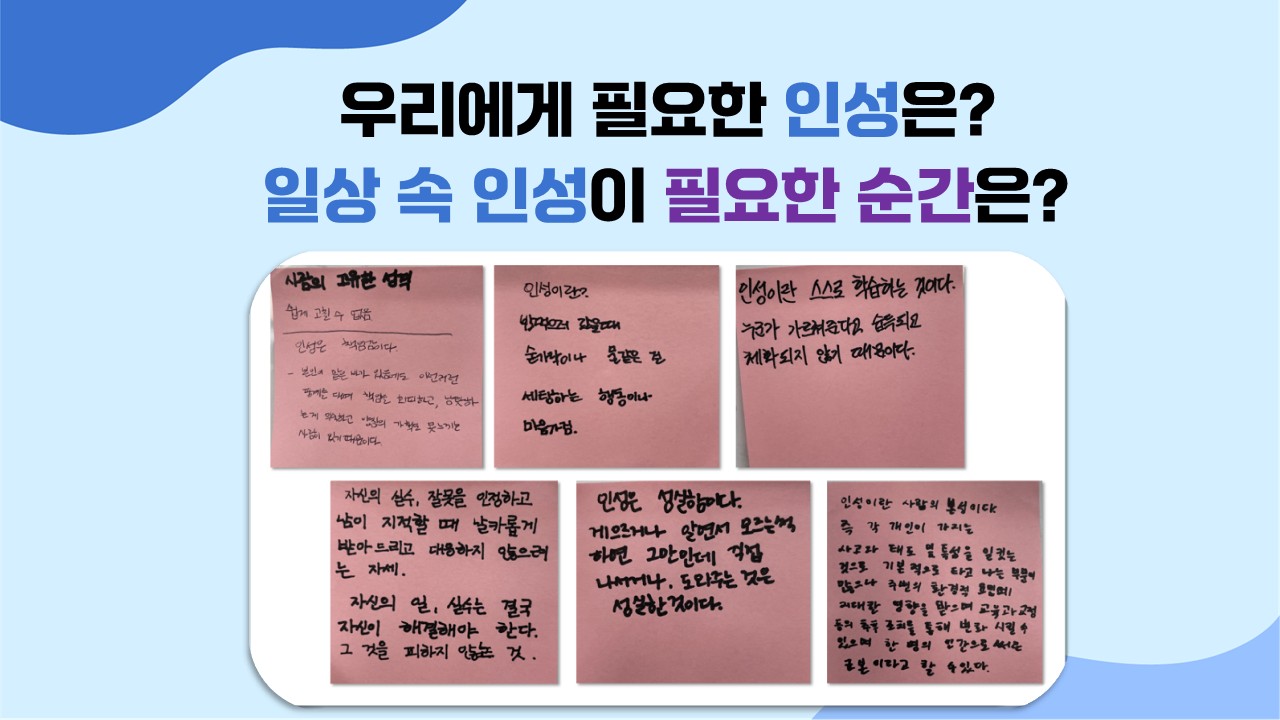 우리에게 필요한 인성은?
일상 속 인성이 필요한 순간은?
사람의 고유한 성격
쉽게 고칠 수 없음
인성은 책임감이다.
- 본인이 맡은 바가 있음에도 이런저런
핑계를 대며 책임을 회피하고,
사람이 있기 때문이다.
인성이란?
밥먹으러 갔을때
숟가락이나 물같은 걸
세팅하는 행동이나
마음가짐.
인성이란 스스로 학습하는 것이다.
누군가 가르쳐준다고 습득되고
체화되지 않기 때문이다.
자신의 실수, 잘못을 인정하고
남이 지적할 때 날카롭게
받아드리고 대응하지 않으려
는 자세.
자신의 일, 실수는 결국
자신이 해결해야 한다.
그 것을 피하지 않는 것.
인성은 성실함이다.
게으르거나 알면서 모르는척
하면 그만인데 직접
나서거나, 도와주는 것은
성실한 것이다.
인성이란 사람의 본성이다
즉 각 개인이 가지는
사고와 태도 및 특성을 일컫는
것으로 기본적으로 타고 나는 부분이
많으나 주변의 환경적 요인에
지대한 영향을 받으며 교육과 교정
등의 후속 조치를 통해 변화 시킬 수
있으며 한 명의 인간으로써는
근본이라고 할 수 있다.